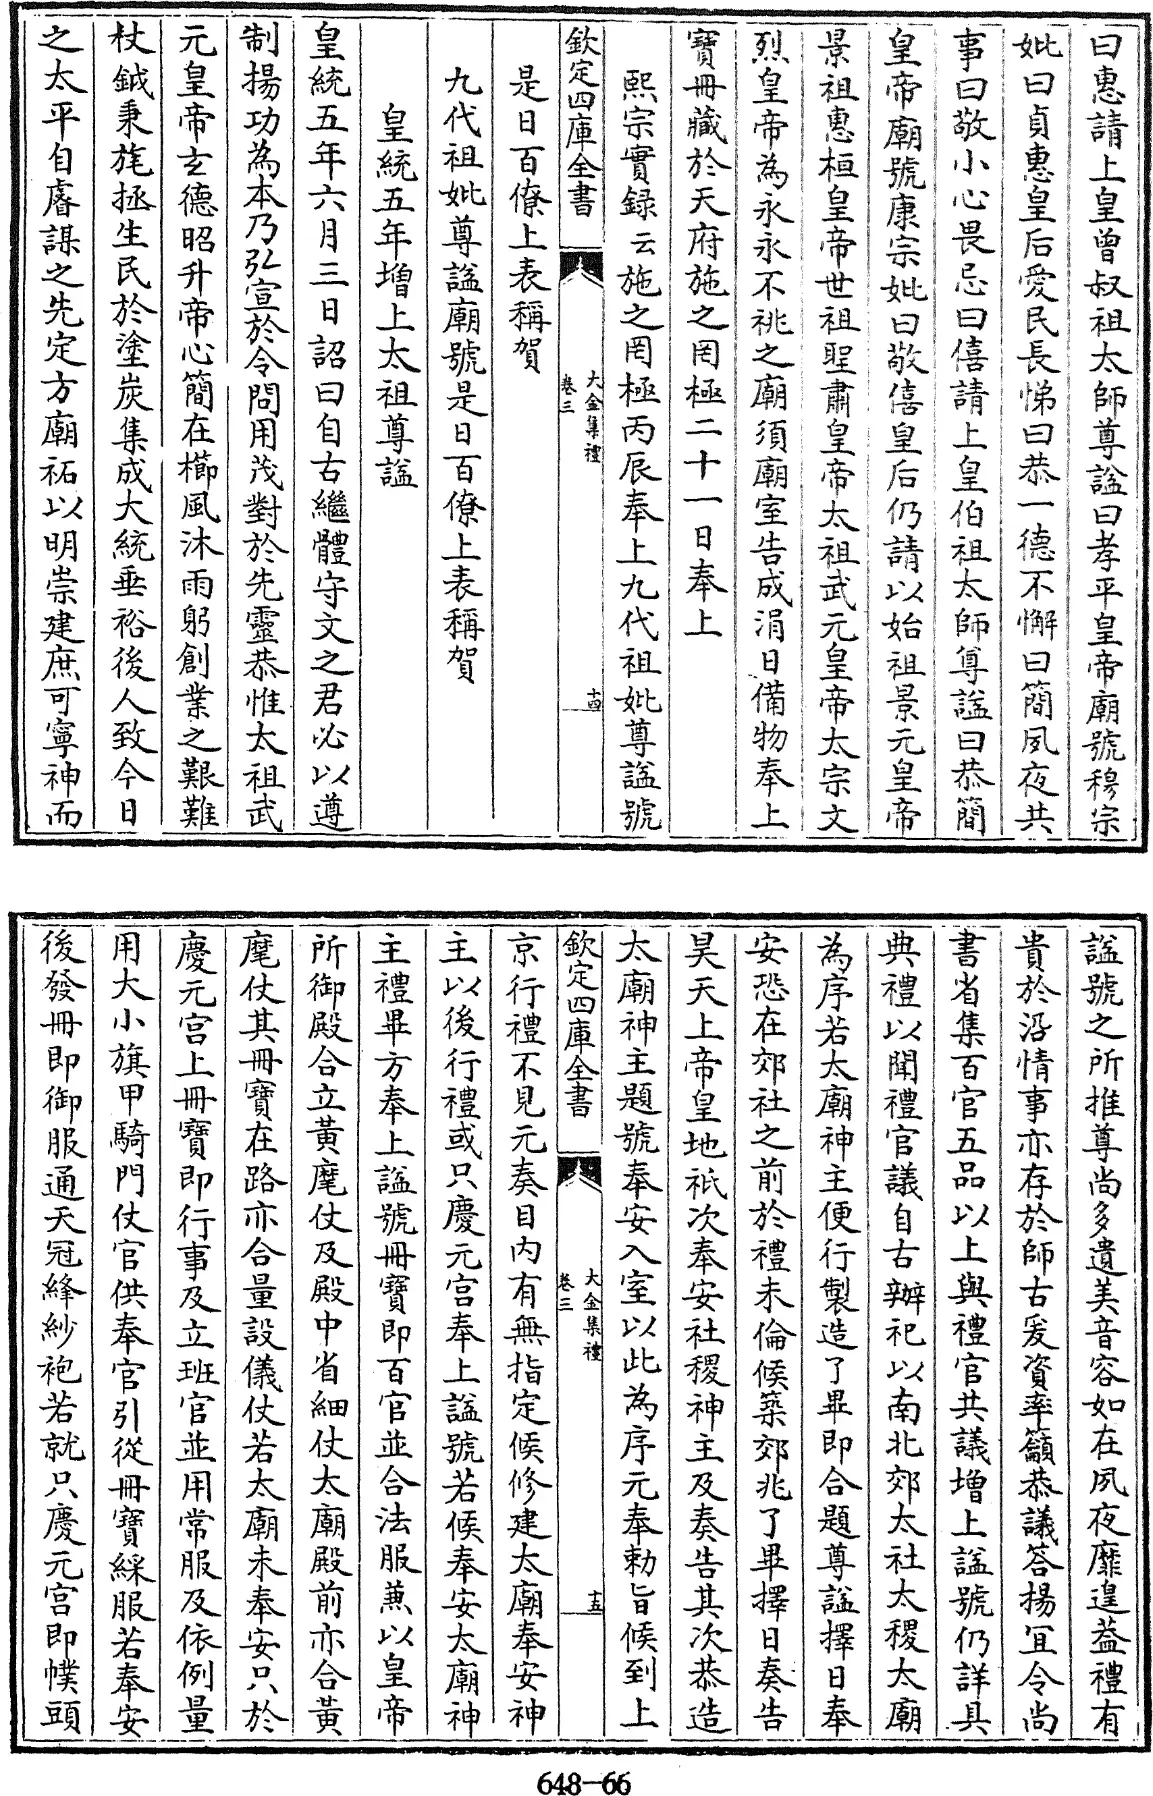 曰惠請上皇曾叔祖太師尊諡曰孝平皇帝廟號穆宗
妣曰貞惠皇后愛民長悌曰恭一德不懈曰簡夙夜共
事曰敬小心畏忌曰僖請上皇伯祖太師尊諡曰恭簡
皇帝廟號康宗妣曰敬僖皇后仍請以始祖景元皇帝
景祖惠桓皇帝世祖聖肅皇帝太祖武元皇帝太宗文
烈皇帝為永永不祧之廟須廟室告成涓日備物奉上
寶冊藏於天府施之罔極二十一日奉上
熙宗實録云施之罔極丙辰奉上九代祖妣尊諡號
欽定四庫全書
大金集禮
卷三
十四
是日百僚上表稱賀
九代祖妣尊諡廟號是日百僚上表稱賀
皇統五年增上太祖尊諡
皇統五年六月三日詔曰自古繼體守文之君必以遵
制揚功為本乃弘宣於令問用茂對於先靈恭惟太祖武
元皇帝玄德昭升帝心簡在櫛風沐雨躬創業之艱難
杖鉞秉旄拯生民於塗炭集成大統垂裕後人致今日
之太平自睿謀之先定方廟祏以明崇建庶可寧神而
諡號之所推尊尚多遺美音容如在夙夜靡遑葢禮有
貴於沿情事亦存於師古爰資率籲恭議答揚宜令尚
書省集百官五品以上與禮官共議增上諡號仍詳具
典禮以聞禮官議自古辦祀以南北郊太社太稷太廟
為序若太廟神主便行製造了畢即合題尊諡擇日奉
安恐在郊社之前於禮未倫候築郊兆了畢擇日奏告
昊天上帝皇地祇次奉安社稷神主及奏告其次恭造
太廟神主題號奉安入室以此為序元奉勅旨候到上
欽定四庫全書
大金集禮
卷三
十五
京行禮不見元奏目内有無指定候修建太廟奉安神
主以後行禮或只慶元宫奉上諡號若候奉安太廟神
主禮畢方奉上諡號冊寶即百官並合法服兼以皇帝
所御殿合立黃麾仗及殿中省細仗太廟殿前亦合黃
麾仗其冊寶在路亦合量設儀仗若太廟未奉安只於
慶元宫上冊寶即行事及立班官並用常服及依例量
用大小旗甲騎門仗官供奉官引從冊寶綵服若奉安
後發冊即御服通天冠絳紗袍若就只慶元宫即幞頭
648-66